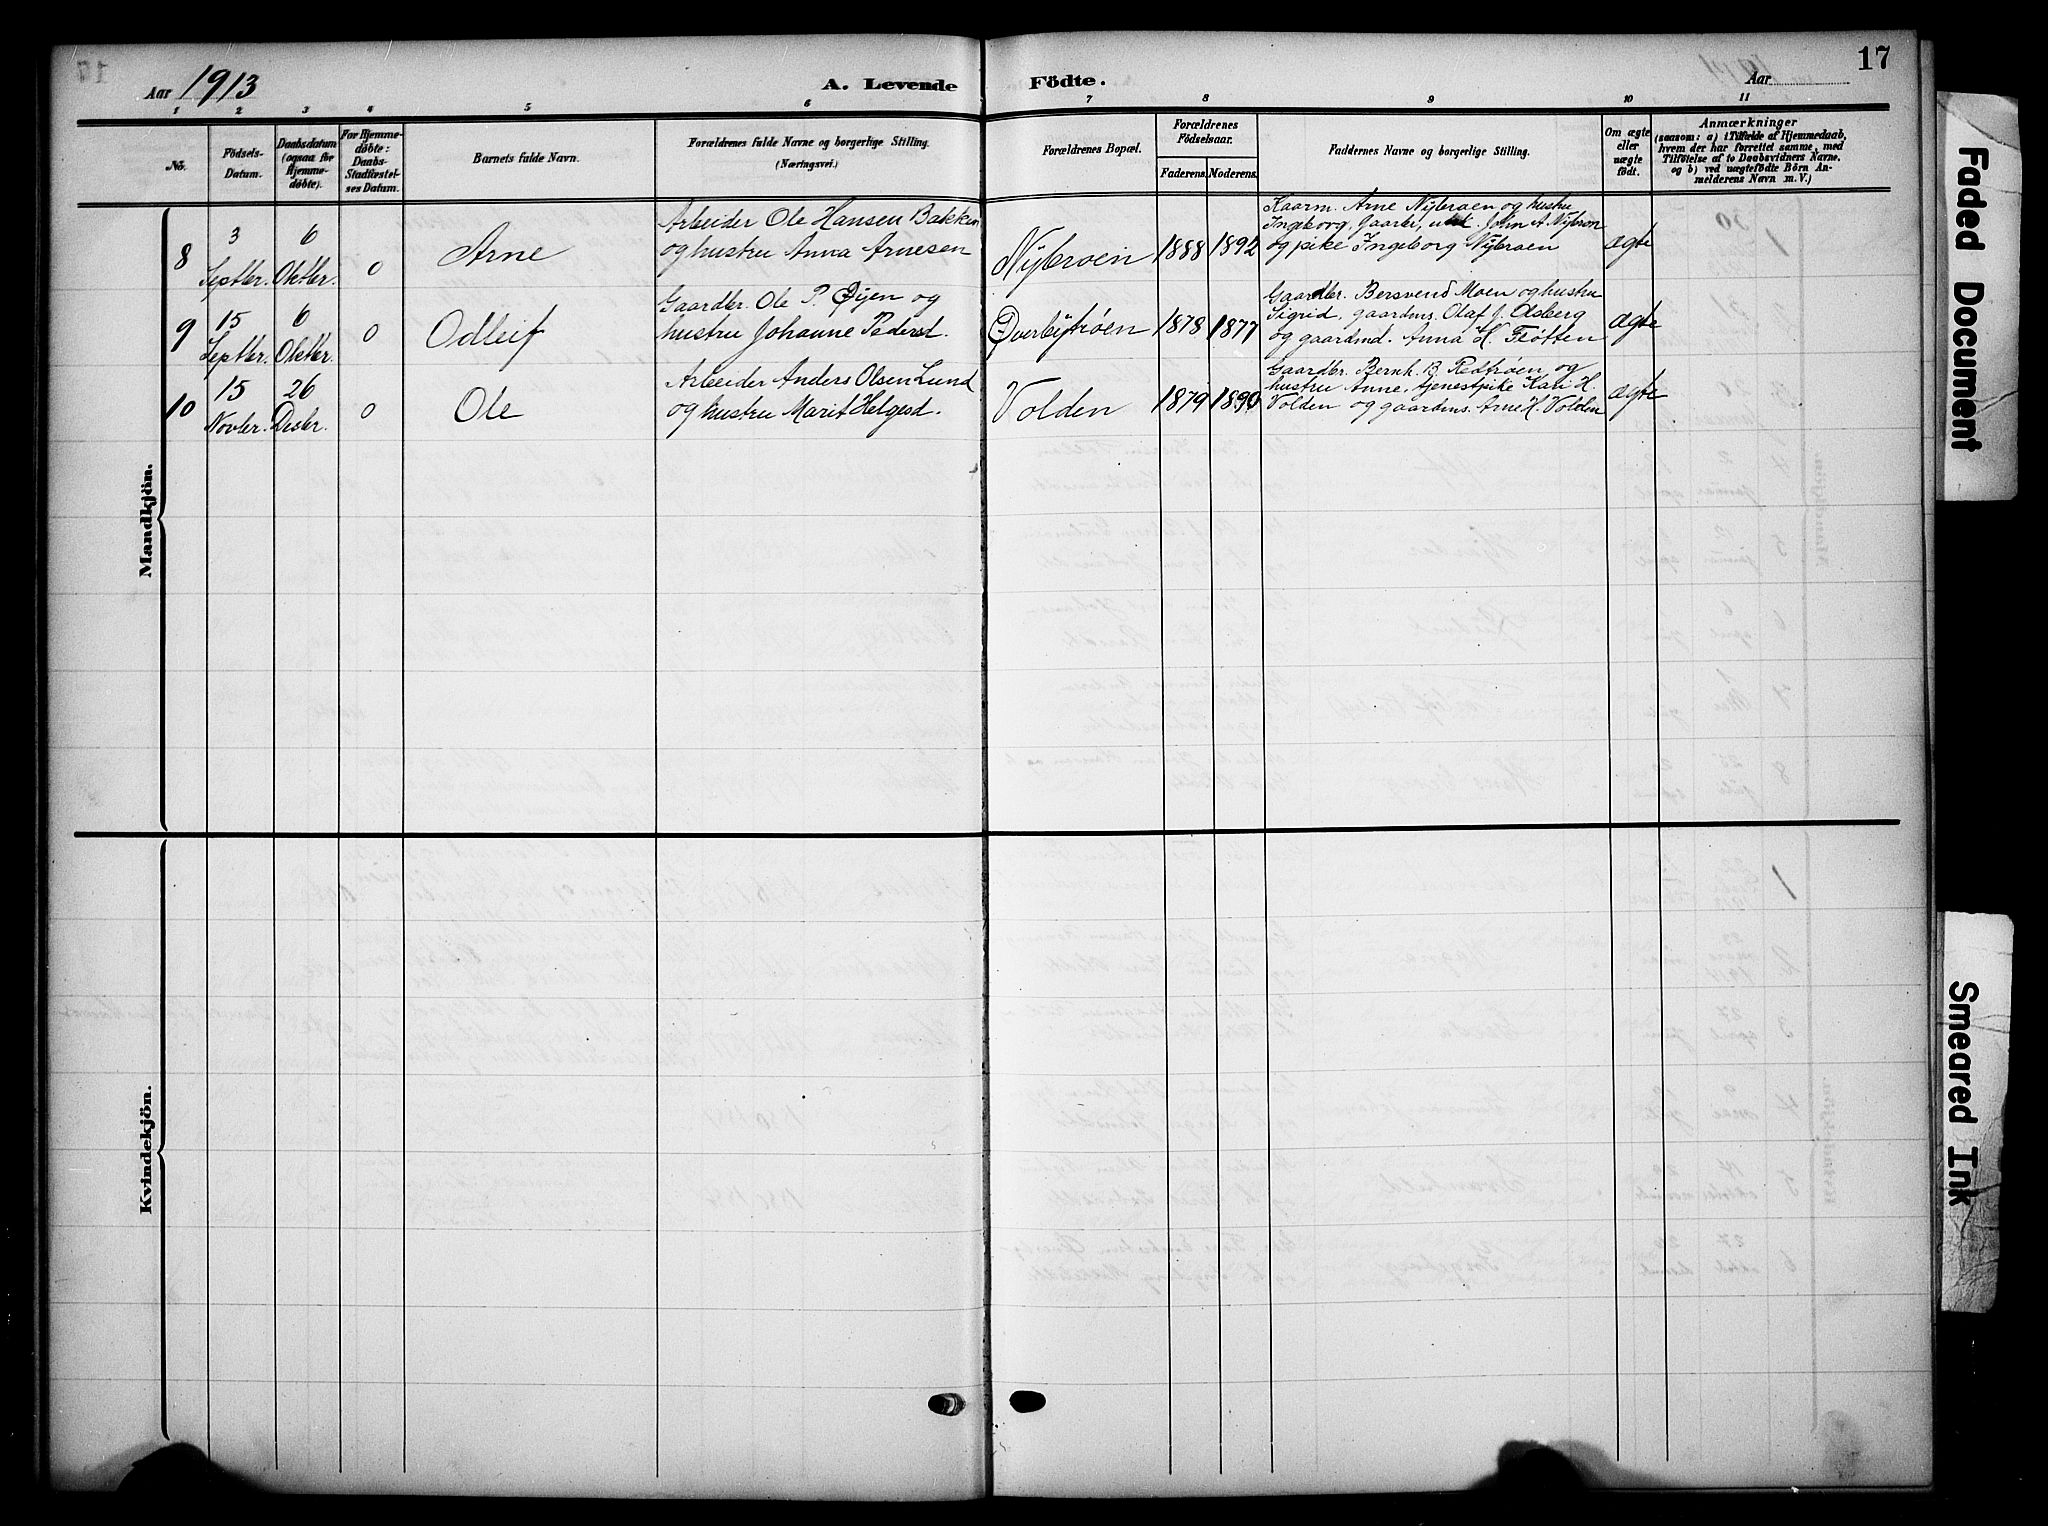 17
Aar 1913 A. Levende Födte. Aar
1 2 3 4 5 6 7 8 9 10 11
No.
Födsels-
Datum.
Daabsdatum
(ogsaa for
Hjemme-
døbte).
For Hjemme-
døbte:
Daabs-
Stadfæstel-
ses Datum.
Barnets fulde Navn.
Forældrenes fulde Navne og borgerlige Stilling.
(Næringsvei.)
Forældrenes Bopæl.
Forældrenes
Födselsaar.
Faderens. Moderens.
Faddernes Navne og borgerlige Stilling.
Om ægte
eller
uægte
født.
Anmærkninger
(saasom: a) i Tilfælde af Hjemmedaab,
hvem der har forrettet samme, med
Tilføielse af to Daabsvidners Navne,
og b) ved uægtefødte Börn An-
melderens Navn m. V.)
Mandkjön.
8
3
Septbr.
6
Oktbr.
0
Arne
Arbeider Ole Hansen Bakken
og hustru Anna Arnesen
Nybroen
1888 1892
Kaarm. Arne Nybroen og hustru
Ingeborg, Gaarbr, John A. Nybroen
og pike Ingeborg Nybroen
ægte
9
15
Septbr.
6
Oktbr.
0
Odleif
Gaardbr. Ole P. Øyen og
hustru Johanne Pedersd.
Øverbytrøen
1878 1877
Gaardbr. Bersvend Moen og hustru
Sigrid, gaardens. Olaf J. Alsberg
og gaardmd. Anna H. Fløtten
ægte
10
15
Novbr.
26
Desbr.
0
Ole
Arbeider Anders Olsen Lund
og hustru Marit Helgesd.
Volden
1879 1890
Gaardbr. Bernh. B. Redtrøen og
hustru Anne, tjenestpike Kari H.
Volden og gaardens. Arne H. Volden
ægte
Kvindekjön.
Faded Document
Smeared Ink